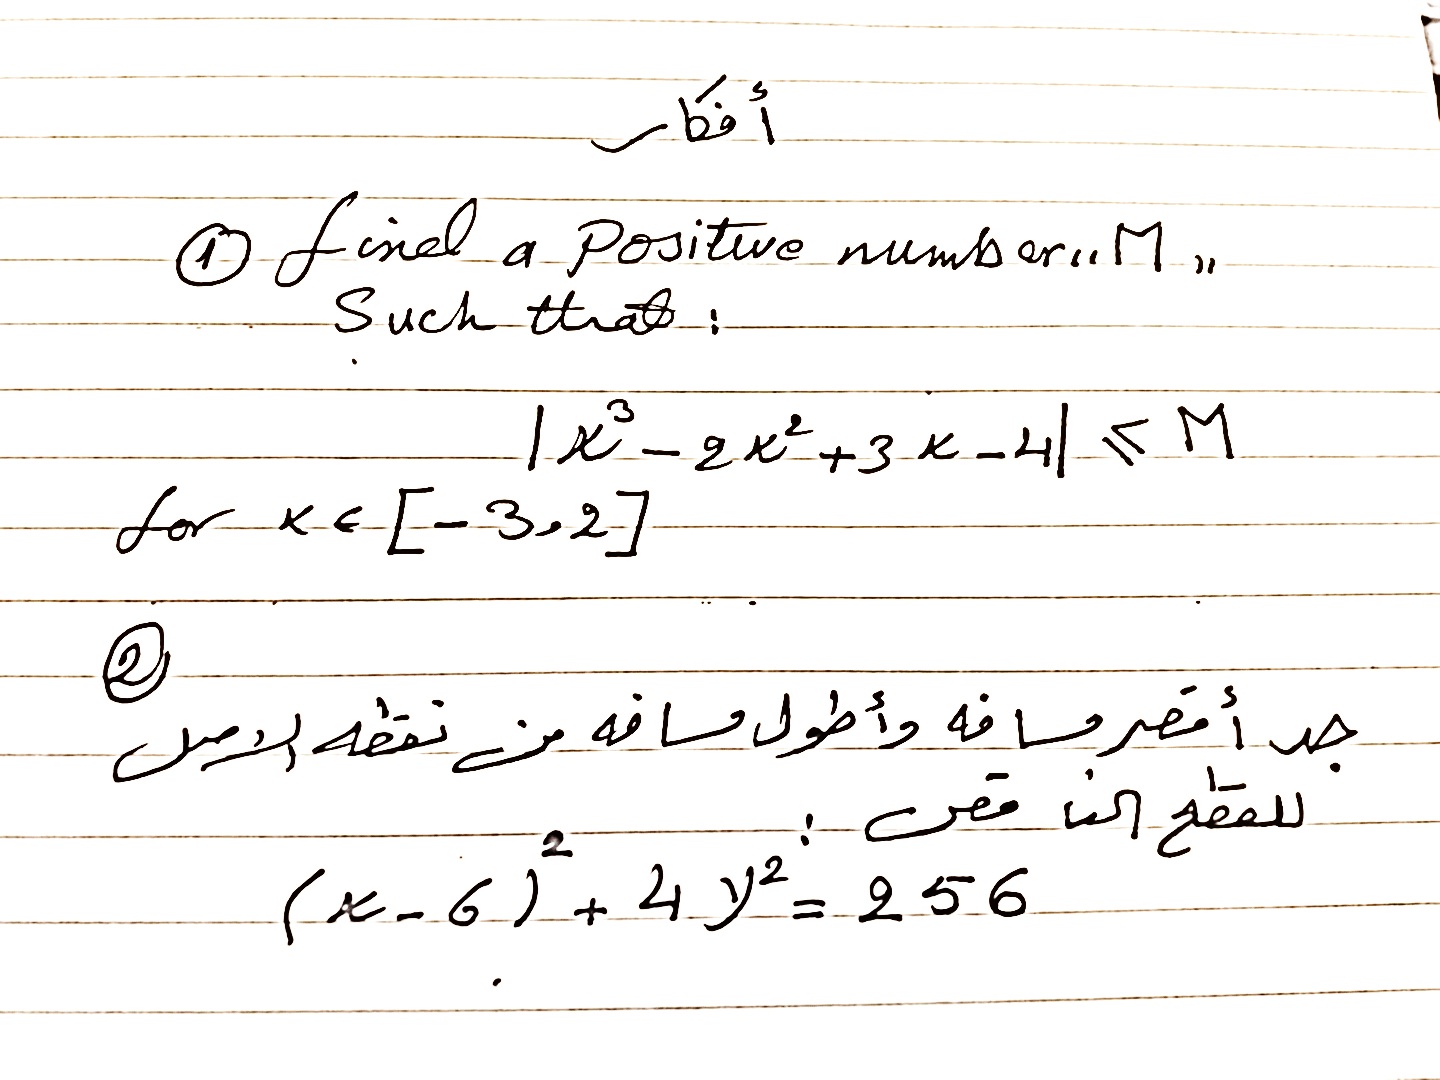 أفكار
① find a positive number „M„
Such that:
|x³ - 2x² + 3x - 4| ⩽ M
for x ∈ [-3,2]
②
جد أقصر مسافه وأطول مسافه من نقطه الاصل
للقطع الناقص :
(x - 6)² + 4y² = 256